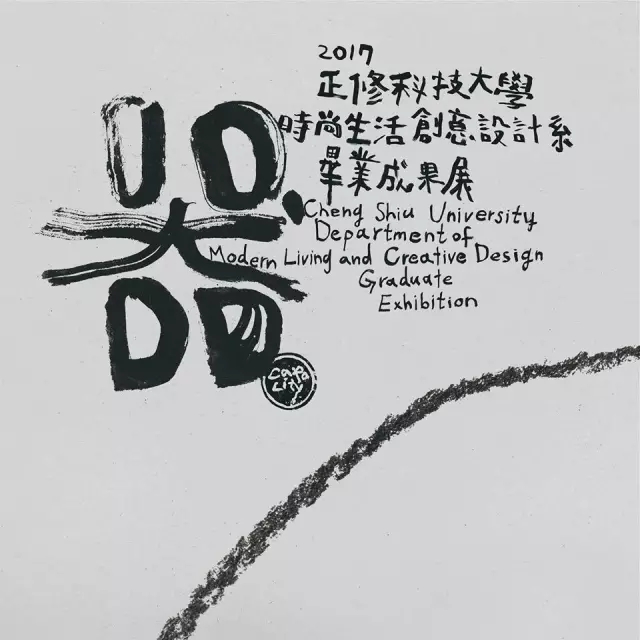 2017
正修科技大學
時尚生活創意設計系
畢業成果展
Cheng Shiu University
Department of
Modern Living and Creative Design
Graduate
Exhibition
器
capa
city